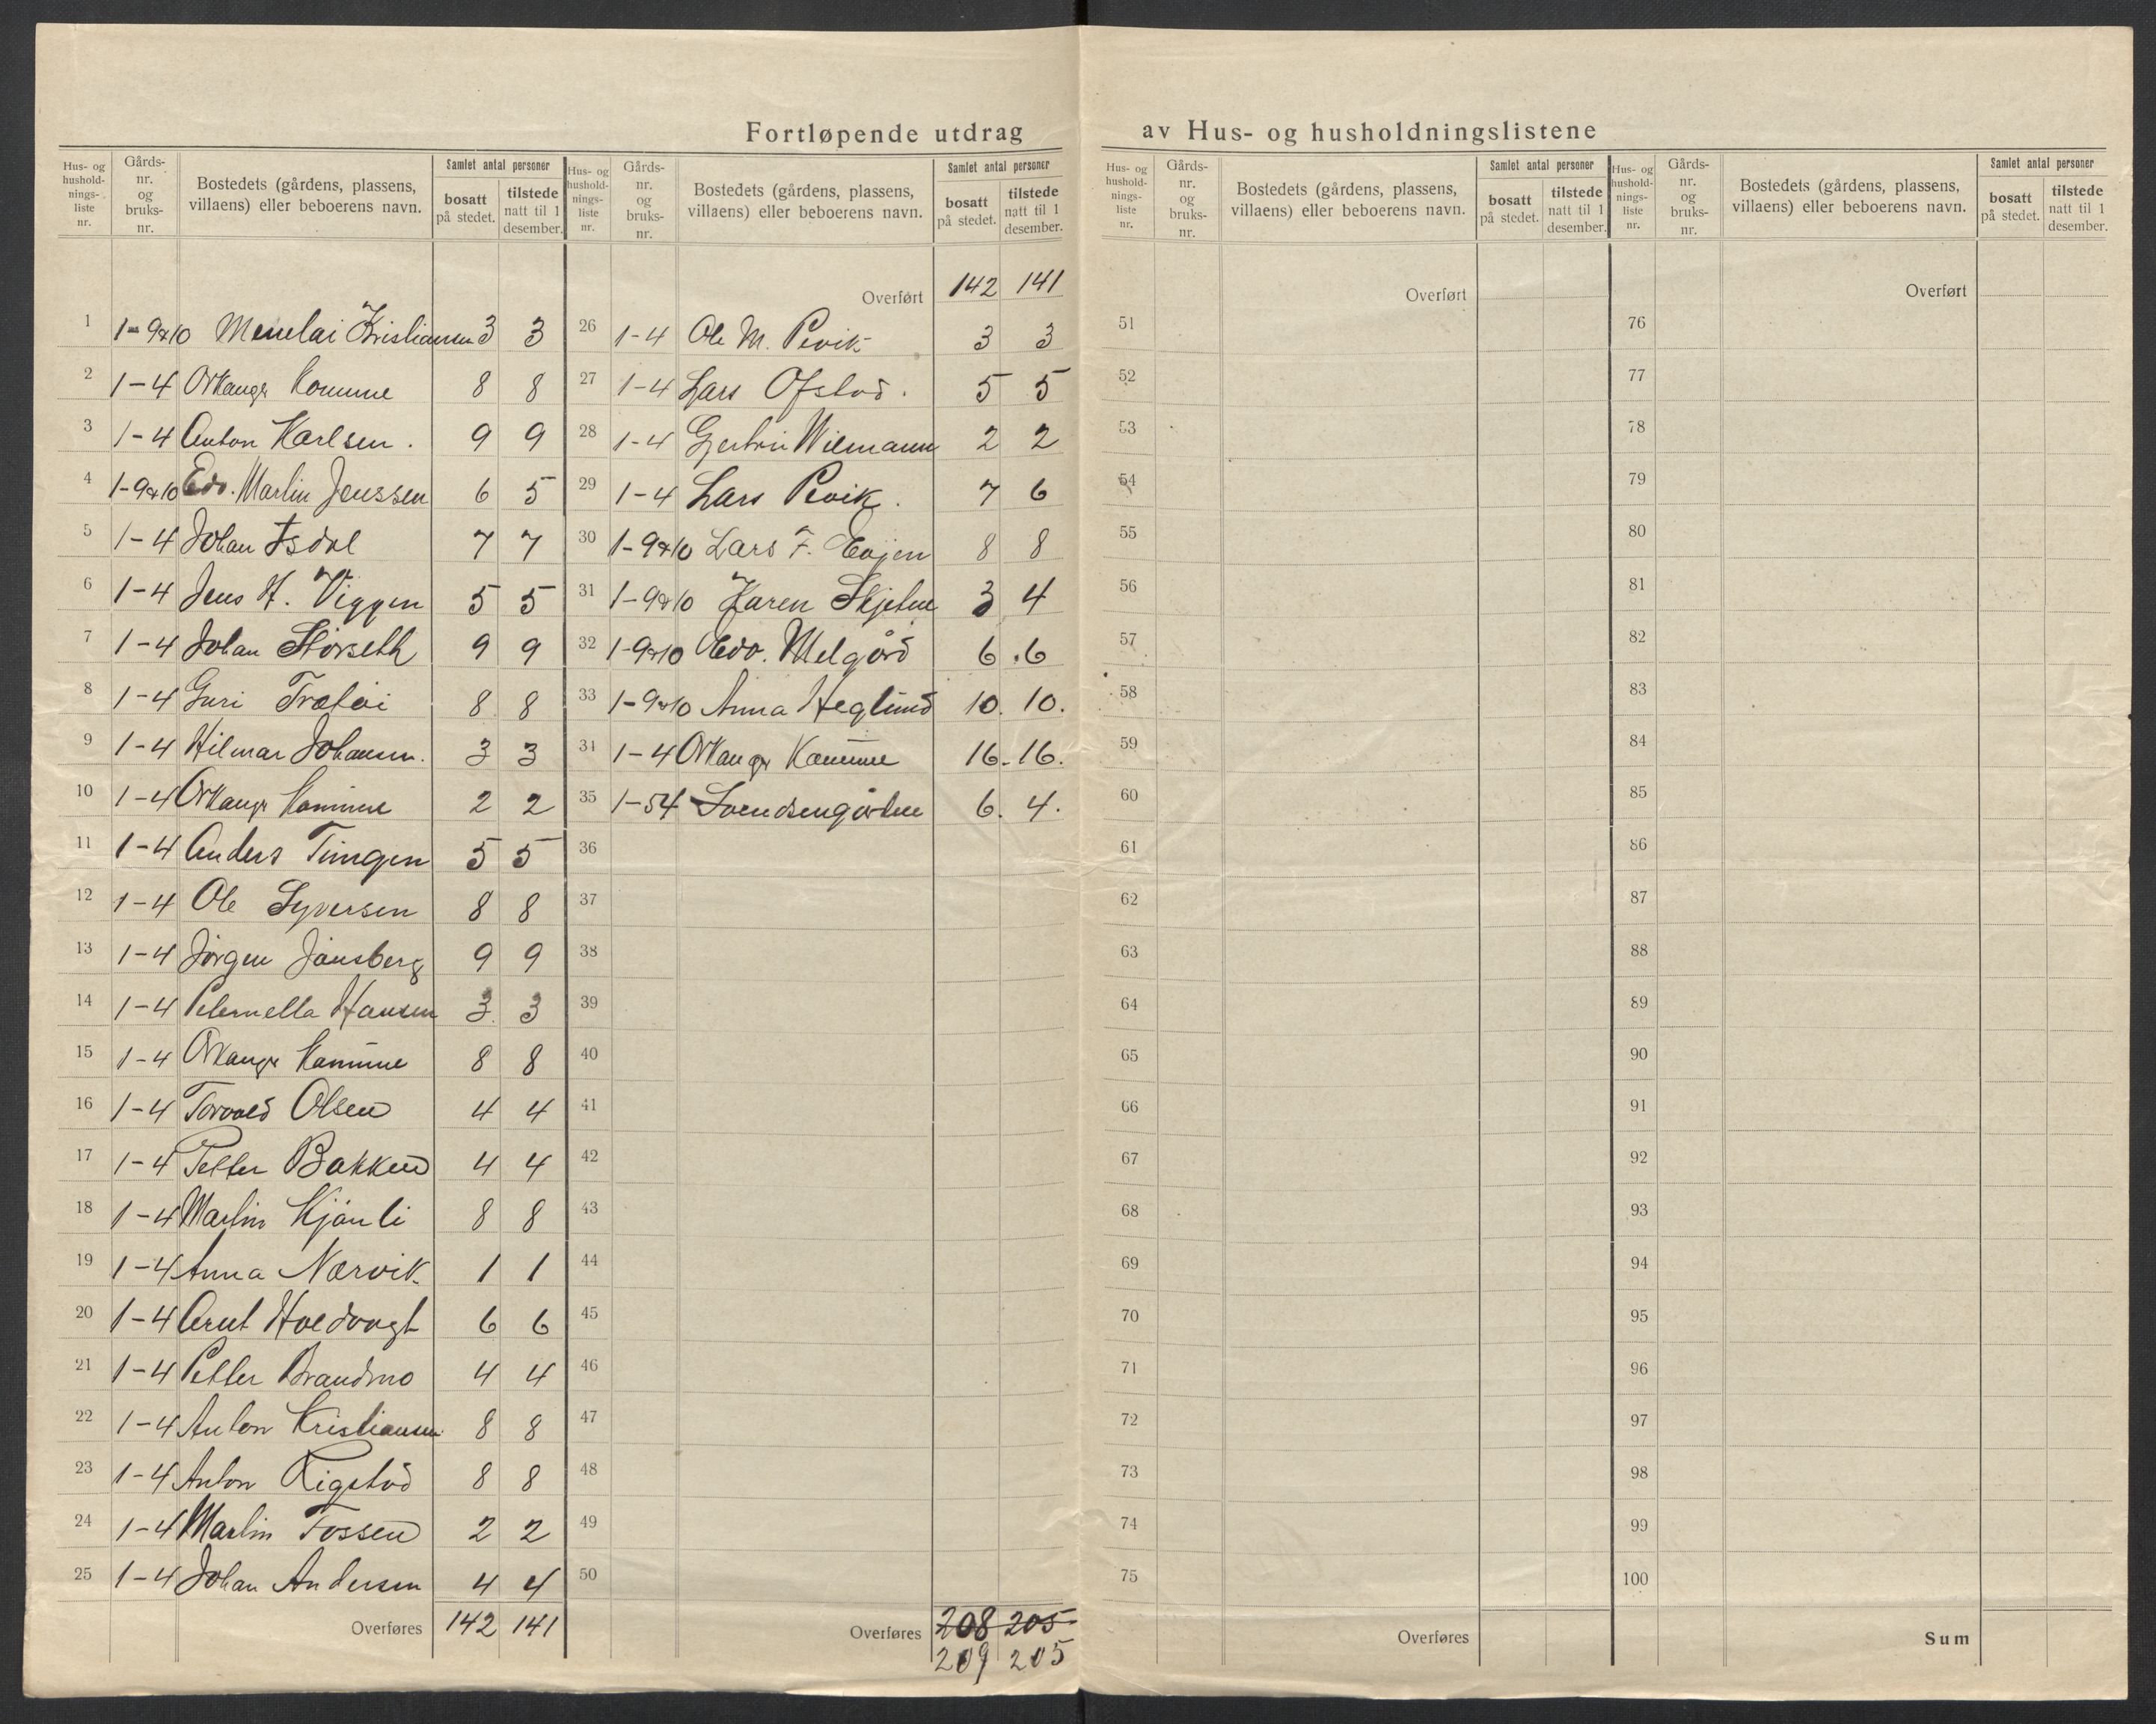 Fortløpende utdrag av Hus- og husholdningslistene
Hus- og hushold-nings-liste nr. | Gårds-nr. og bruks-nr. | Bostedets (gårdens, plassens, villaens) eller beboerens navn. | Samlet antal personer | bosatt på stedet. | tilstede natt til 1 desember.
1 1-9&10 Menelai Kristiansen 3 3
2 1-4 Orkanger Komune 8 8
3 1-4 Anton Karlsen. 9 9
4 1-9&10 Edv. Martin Jenssen 6 5
5 1-4 Johan Isdal 7 7
6 1-4 Jens H. Viggen 5 5
7 1-4 Johan Störseth 9 9
8 1-4 Guri 8 8
9 1-4 Hilmar Johansen. 3 3
10 1-4 Orkanger Komune 2 2
11 1-4 Anders 5 5
12 1-4 Ole Syversen 8 8
13 1-4 Jörgen Jönsberg 9 9
14 1-4 Peternella Hansen 3 3
15 1-4 Orkanger Komune 8 8
16 1-4 Torvald Olsen 4 4
17 1-4 Petter Bakken 4 4
18 1-4 Martin Kjønli 8 8
19 1-4 Anna Narvik 1 1
20 1-4 Arnt Holdvogt 6 6
21 1-4 Petter Brandmo 4 4
22 1-4 Anton Kristiansen 8 8
23 1-4 Anton Rigstad 8 8
24 1-4 Martin Fossen 2 2
25 1-4 Johan Andersen 4 4
Overføres 142 141
Hus- og hushold-nings-liste nr. | Gårds-nr. og bruks-nr. | Bostedets (gårdens, plassens, villaens) eller beboerens navn. | Samlet antal personer | bosatt på stedet. | tilstede natt til 1 desember.
Overført 142 141
26 1-4 Ole M. Pevik 3 3
27 1-4 Lars Ofstad. 5 5
28 1-4 Wiemann 2 2
29 1-4 Lars Pevik. 7 6
30 1-9&10 Lars F. Evjen 8 8
31 1-9&10 Karen Skjetne 3 4
32 1-9&10 Edv. Melgård 6 6
33 1-9&10 Anna Heglund 10. 10.
34 1-4 Orkanger Komune 16. 16.
35 1-54 Svendsengården 6. 4.
36
37
38
39
40
41
42
43
44
45
46
47
48
49
50
Overføres 208 205
209 205
Hus- og hushold-nings-liste nr. | Gårds-nr. og bruks-nr. | Bostedets (gårdens, plassens, villaens) eller beboerens navn. | Samlet antal personer | bosatt på stedet. | tilstede natt til 1 desember.
Overført
51
52
53
54
55
56
57
58
59
60
61
62
63
64
65
66
67
68
69
70
71
72
73
74
75
Overføres
Hus- og hushold-nings-liste nr. | Gårds-nr. og bruks-nr. | Bostedets (gårdens, plassens, villaens) eller beboerens navn. | Samlet antal personer | bosatt på stedet. | tilstede natt til 1 desember.
Overført
76
77
78
79
80
81
82
83
84
85
86
87
88
89
90
91
92
93
94
95
96
97
98
99
100
Sum